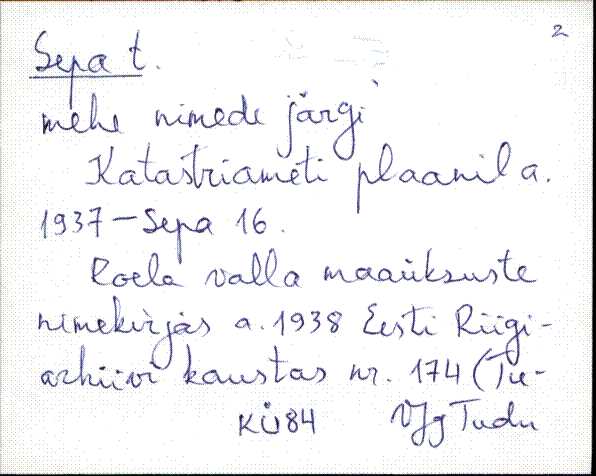 2
Sepa t.
mehe nimede järgi
Katastriameti plaanil a.
1937 - Sepa 16.
Roela valla maaüksuste
nimekirjas a. 1938 Eesti Riigi-
arhiivi kaustas nr. 174 (Tu-
KÜ84 VJg Tudu